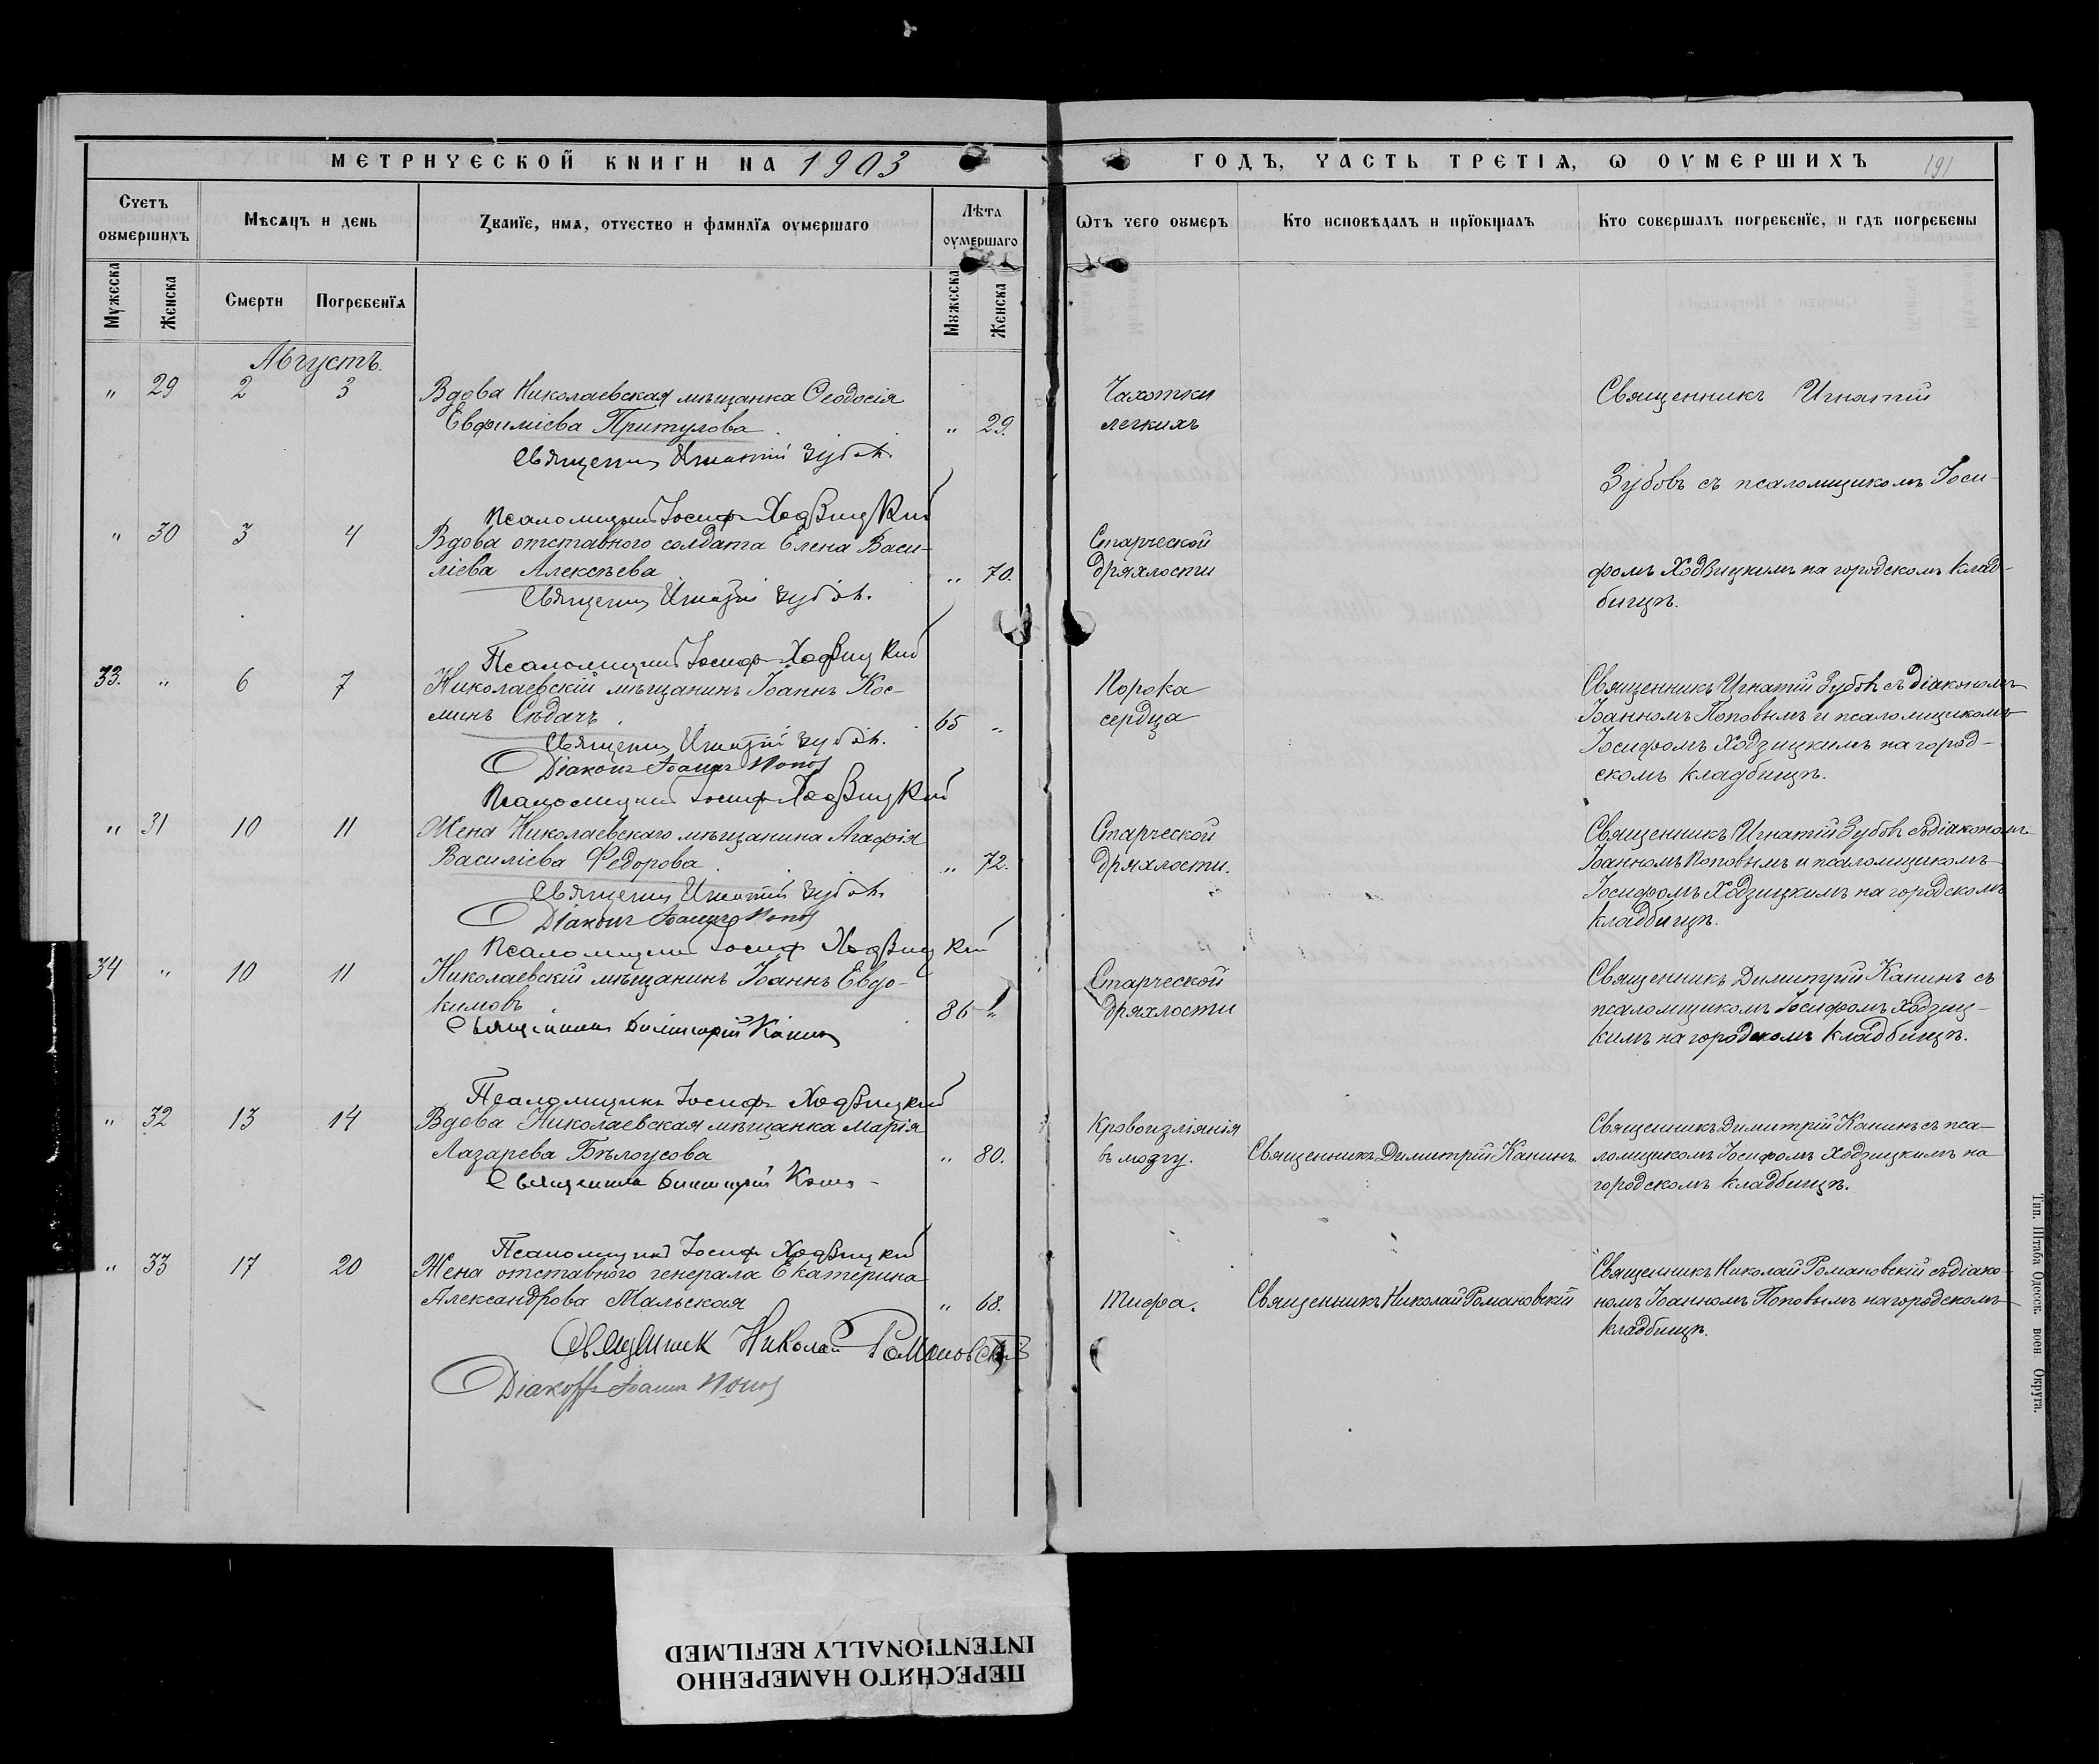 МЕТРИЧЕСКОЙ КНИГИ НА 1903
ГОДЪ, ЧАСТЬ ТРЕТІѦ, Ѡ ОУМЕРШИХЪ
191
Счетъ оумершихъ
Мѣсѧцъ и день
Званїе, имѧ, отчество и фамилїѧ оумершаго
Лѣта оумершаго
Ѿтъ чего оумеръ
Кто исповѣдалъ и прїобщалъ
Кто совершалъ погребенїе, и гдѣ погребены
Мужеска
Женска
Смерти
Погребенїѧ
Мужеска
Женска
Августъ.
" 29 2 3 Вдова Николаевская мѣщанка Ѳеодосія
Евфиміева Притулова " 29.
Чахотки
легкихъ
Священникъ Игнатій
Священник Игнатій Зубовъ.
Зубовъ съ псаломщикомъ Іоси-
Псаломщикъ Іосифъ Ходзицкій
" 30 3 4 Вдова отставного солдата Елена Васи-
ліева Алексѣева " 70.
Старческой
дряхлости
фомъ Ходзицкимъ на городскомъ клад-
бищѣ.
Священник Игнатій Зубовъ.
Псаломщикъ Іосифъ Ходзицкій
33. " 6 7 Николаевскій мѣщанинъ Іоаннъ Кос-
минъ Сѣдачъ 65 "
Порока
сердца
Священникъ Игнатій Зубовъ съ діакономъ
Іоанномъ Поповымъ и псаломщикомъ
Іосифомъ Ходзицкимъ на город-
скомъ кладбищѣ.
Священник Игнатій Зубовъ.
Діаконъ Іоаннъ Поповъ
Псаломщикъ Іосифъ Ходзицкій
" 31 10 11 Жена Николаевскаго мѣщанина Агафія
Василіева Федорова " 72.
Старческой
дряхлости.
Священникъ Игнатій Зубовъ съ діакономъ
Іоанномъ Поповымъ и псаломщикомъ
Іосифомъ Ходзицкимъ на городскомъ
кладбищѣ.
Священник Игнатій Зубовъ.
Діаконъ Іоаннъ Поповъ
Псаломщикъ Іосифъ Ходзицкій
34 " 10 11 Николаевскій мѣщанинъ Іоаннъ Евдо-
кимовъ 86 "
Старческой
дряхлости
Священникъ Димитрій Канинъ съ
псаломщикомъ Іосифомъ Ходзиц-
кимъ на городскомъ кладбищѣ.
Священникъ Димитрій Канинъ
Псаломщикъ Іосифъ Ходзицкій
" 32 13 14 Вдова Николаевская мѣщанка Марія
Лазарева Бѣлоусова " 80.
Кровоизліянія
въ мозгу.
Священникъ Димитрій Канинъ.
Священникъ Димитрій Канинъ съ пса-
ломщикомъ Іосифомъ Ходзицкимъ на
городскомъ кладбищѣ.
Священникъ Димитрій Канинъ
Псаломщикъ Іосифъ Ходзицкій
" 33 17 20 Жена отставного генерала Екатерина
Александрова Мальская " 68.
Тифа.
Священникъ Николай Романовскій
Священникъ Николай Романовскій съ діако-
номъ Іоанномъ Поповымъ на городскомъ
кладбищѣ.
Священник Николай Романовскій
Діаконъ Іоаннъ Поповъ
Тип. Штаба Одесск. воен. Округа.
ПЕРЕСНЯТО НАМЕРЕННО
INTENTIONALLY REFILMED